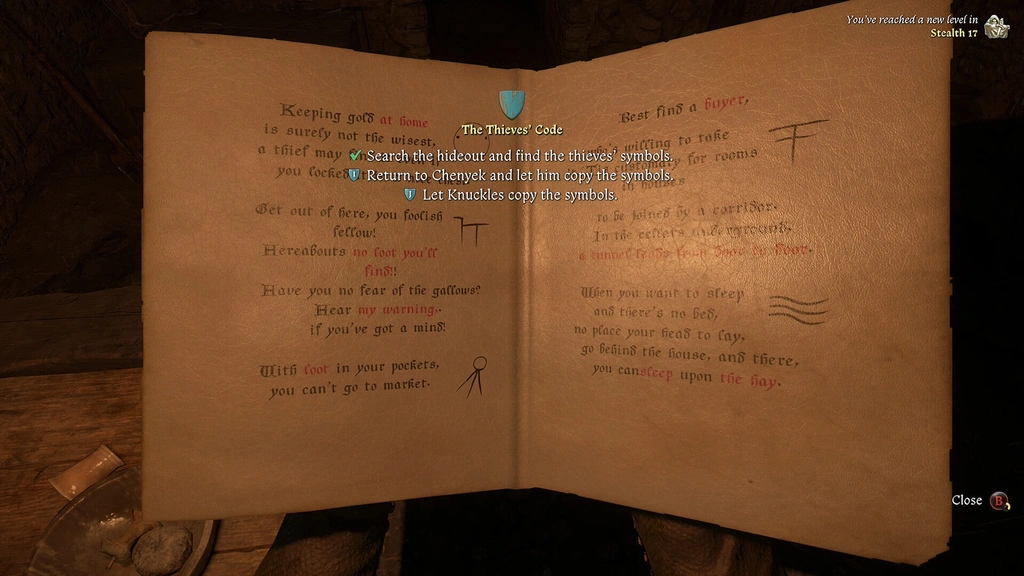 You've reached a new level in
Stealth 17
The Thieves' Code
Search the hideout and find the thieves' symbols.
Return to Chenyek and let him copy the symbols.
Let Knuckles copy the symbols.
Keeping gold at home
is surely not the wisest,
a thief may
you locked
Get out of here, you foolish
fellow!
Hereabouts no loot you'll
find!!
Have you no fear of the gallows?
Hear my warning..
if you've got a mind!
With loot in your pockets,
you can't go to market.
Best find a buyer,
who's willing to take
customary for rooms
in houses
to be joined by a corridor.
In the cellers underground,
a tunnel leads from door to door.
When you want to sleep
and there's no bed,
no place your head to lay,
go behind the house, and there,
you cansleep upon the hay.
Close B